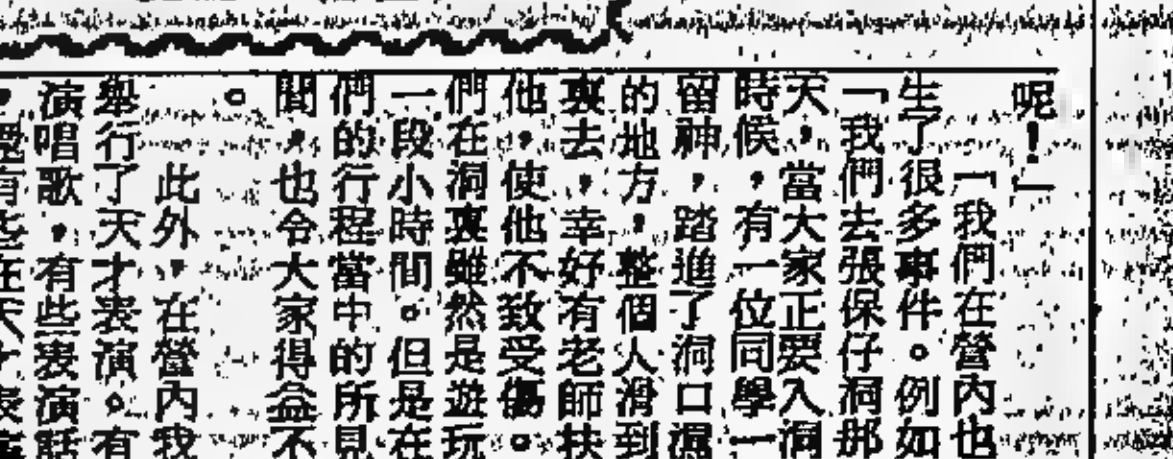 呢！」
「我們在營內也
生了很多事件。例如
「我們去張保仔洞那
天，當大家正要入洞
時候，有一位同學一
留神，踏進了洞口濕
的地方，整個人滑到
裏去，幸好有老師扶
他，使他不致受傷。
們在洞裏雖然是遊玩
一段小時間。但是在
們的行程當中的所見
聞，也令大家得益不
。
此外，在營內我
舉行了天才表演。有
演唱歌，有些表演話
，還有些在天才表演